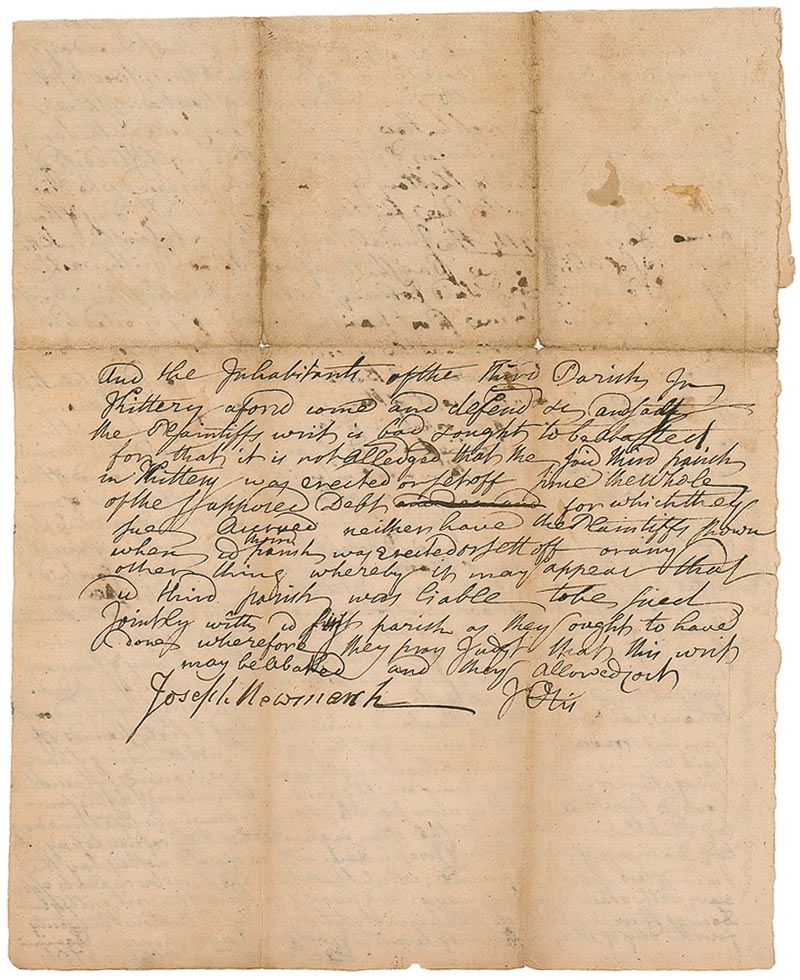 And the Inhabitants of the third Parish In
Kittery afors'd come and defend &c and say
the Plaintiffs writ is bad & ought to be abated
for that it is not Alledged that the said third parish
in Kittery was erected or set off since the whole
of the Supposed Debt and demand for which they
sue Accrued neither have the Plaintiffs shown
when s'd third parish was Erected or sett off or any
other thing whereby it may appear that
s'd third parish was liable to be sued
Jointly with s'd first parish as they ought to have
done wherefore they pray Judgt that this writ
may be abated and they allowed cost
Joseph Newmarch J Otis